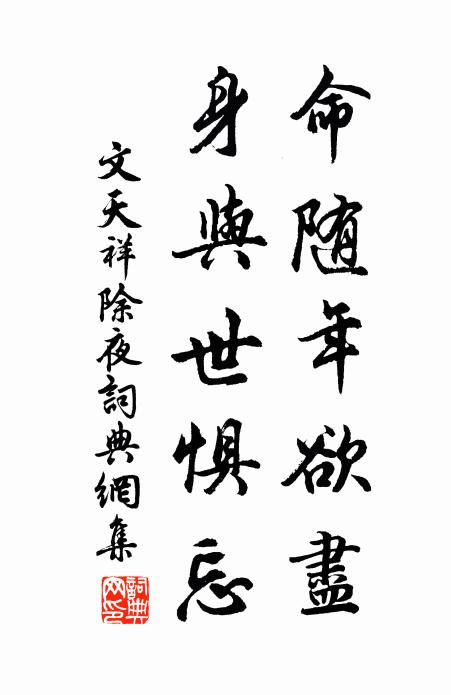 命随年欲盡
身與世惧忘
文天祥除夜詞典網集
詞典
网印